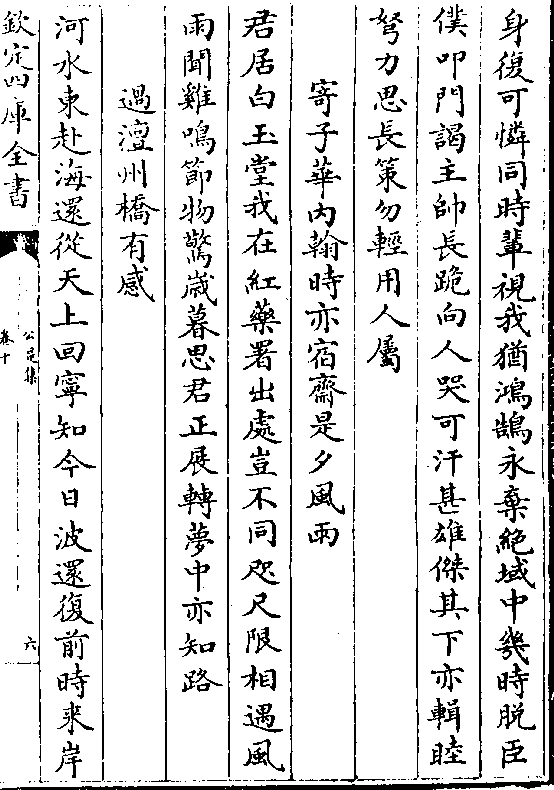 身復可憐同時輩視我猶鴻鵠永棄絶域中幾時脱臣
僕叩門謁主帥長跪向人哭可汗甚雄傑其下亦輯睦
努力思長策勿輕用人屬
寄子華内翰時亦宿齋是夕風雨
君居白玉堂我在紅藥署出處豈不同咫尺限相遇風
雨聞雞鳴節物驚歳暮思君正展轉夢中亦知路
過澶州橋有感
河水東赴海還從天上回寧知今日波還復前時来岸
欽定四庫全書
公是集
卷十
六